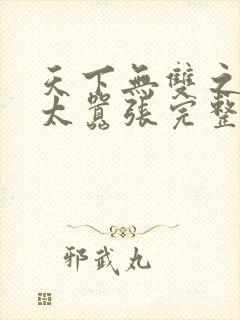 天下無雙之
太囂張完整
邪武丸